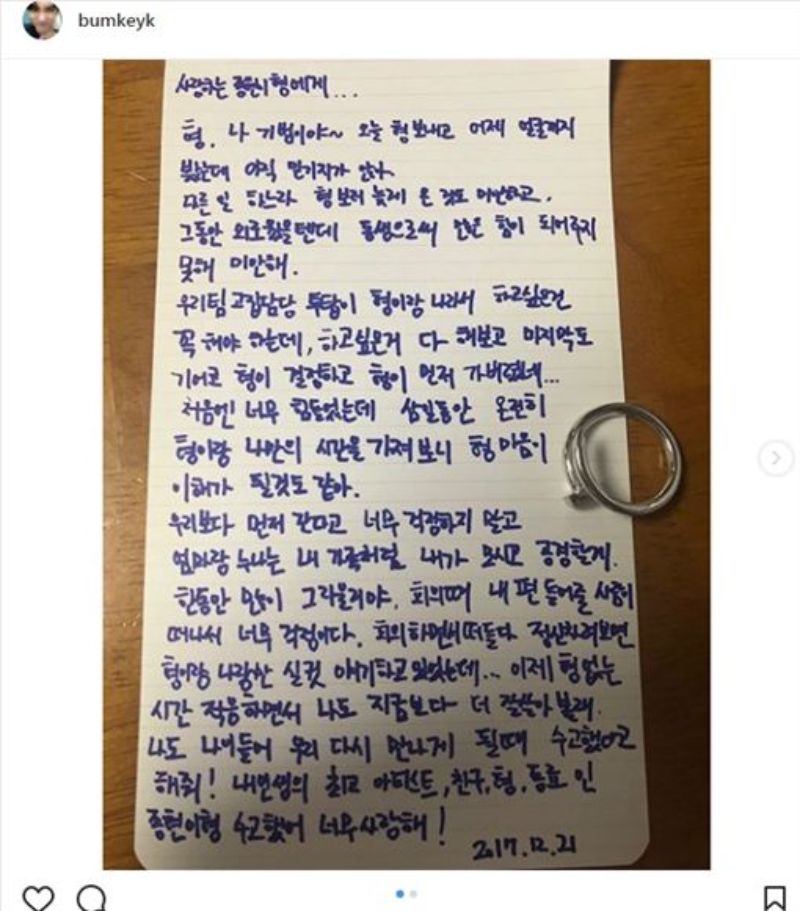 bumkeyk
사랑하는 종현이형에게...
형. 나 기범이야~ 오늘 형 보내고 어제 얼굴까지
봤는데 아직 믿기지가 않아.
다른 일 하느라 형 보러 늦게 온 것도 미안하고,
그동안 외로웠을텐데 동생으로써 많은 힘이 되어주지
못해 미안해.
우리팀 고집담당 투탑이 형이랑 나라서 하고싶은건
꼭 해야 하는데, 하고싶은거 다 해보고 마지막도
기어코 형이 결정하고 형이 먼저 가버렸네...
처음엔 너무 힘들었는데 삼일동안 온전히
형이랑 나만의 시간을 가져보니 형 마음이
이해가 될것도 같아.
우리보다 먼저 간다고 너무 걱정하지 말고
엄마랑 누나는 내 가족처럼 내가 모시고 공경할게.
한동안 많이 그리울거야. 회의때 내 편 들어줄 사람이
떠나서 너무 걱정이다. 회의하면서 떠들다 정신차려보면
형이랑 나랑만 실컷 얘기하고 있었는데... 이제 형 없는
시간 적응하면서 나도 지금보다 더 잘 살아 볼래.
나도 나이들어 우리 다시 만나게 될때 수고했다고
해줘! 내 인생의 최고 아티스트, 친구, 형, 동료 인
종현이형 수고했어 너무 사랑해!
2017.12.21